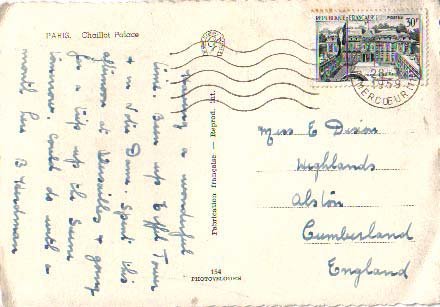 PARIS. Chaillot Palace
Having a wonderful
time. Been up Eiffel Tower
+ in Notre Dame. Spent this
afternoon at Versailles + going
for a trip up the Seine
tomorrow. Could do with a
month here B
Fabrication française - Reprod. int.
154
PHOTOVELOURS
REPUBLIQUE FRANÇAISE
POSTES
30F
28
1959
MERCŒUR
Miss E
Highlands
Alston
Cumberland
England